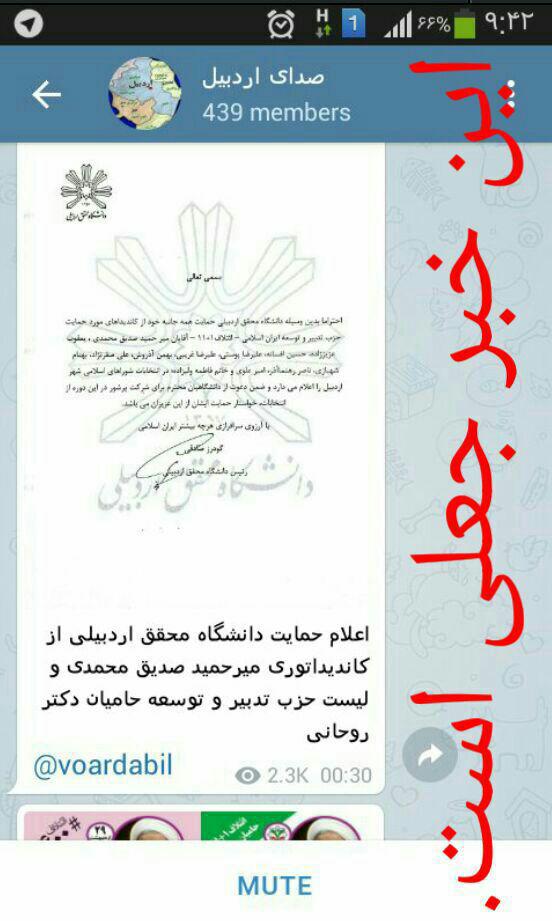 H
1
۶۶%
۹:۴۲
صدای اردبیل
439 members
اردبیل
دانشگاه محقق اردبیلی
بسمی تعالی
احتراما بدین وسیله دانشگاه محقق اردبیلی حمایت همه جانبه خود از کاندیداهای مورد حمایت
حزب تدبیر و توسعه ایران اسلامی - ائتلاف ۱+۱۰ - آقایان میر حمید صدیق محمدی ، یعقوب
عزیززاده، حسین افسانه، علیرضا پوستی، علیرضا غریبی، بهمن آذروش، علی صفرنژاد، بهنام
شهبازی، ناصر رهنماآذر، امیر علوی و خانم فاطمه ولیزاده؛ در انتخابات شوراهای اسلامی شهر
اردبیل را اعلام می دارد و ضمن دعوت از دانشگاهیان محترم برای شرکت پرشور در این دوره از
انتخابات، خواستار حمایت ایشان از این عزیزان می باشد.
با آرزوی سرافرازی هرچه بیشتر ایران اسلامی
گودرز صادقی
رئیس دانشگاه محقق اردبیلی
۱۳۵۷
دانشگاه محقق اردبیلی
اعلام حمایت دانشگاه محقق اردبیلی از
کاندیداتوری میرحمید صدیق محمدی و
لیست حزب تدبیر و توسعه حامیان دکتر
روحانی
@voardabil
2.3K 00:30
۲۹
MUTE
این خبر جعلی است.